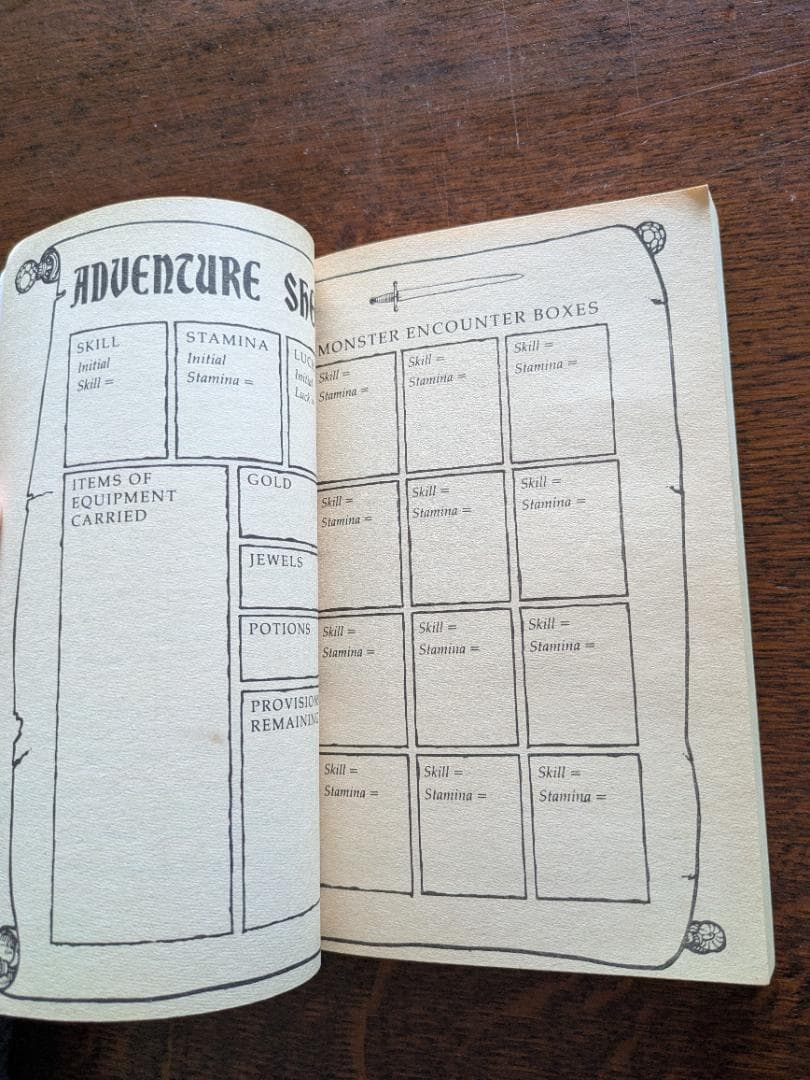 ADVENTURE She
SKILL
Initial
Skill =
STAMINA
Initial
Stamina =
LUC
Initia
Luck =
ITEMS OF
EQUIPMENT
CARRIED
GOLD
JEWELS
POTIONS
PROVISION
REMAINING
MONSTER ENCOUNTER BOXES
Skill =
Stamina =
Skill =
Stamina =
Skill =
Stamina =
Skill =
Stamina =
Skill =
Stamina =
Skill =
Stamina =
Skill =
Stamina =
Skill =
Stamina =
Skill =
Stamina =
Skill =
Stamina =
Skill =
Stamina =
Skill =
Stamina =